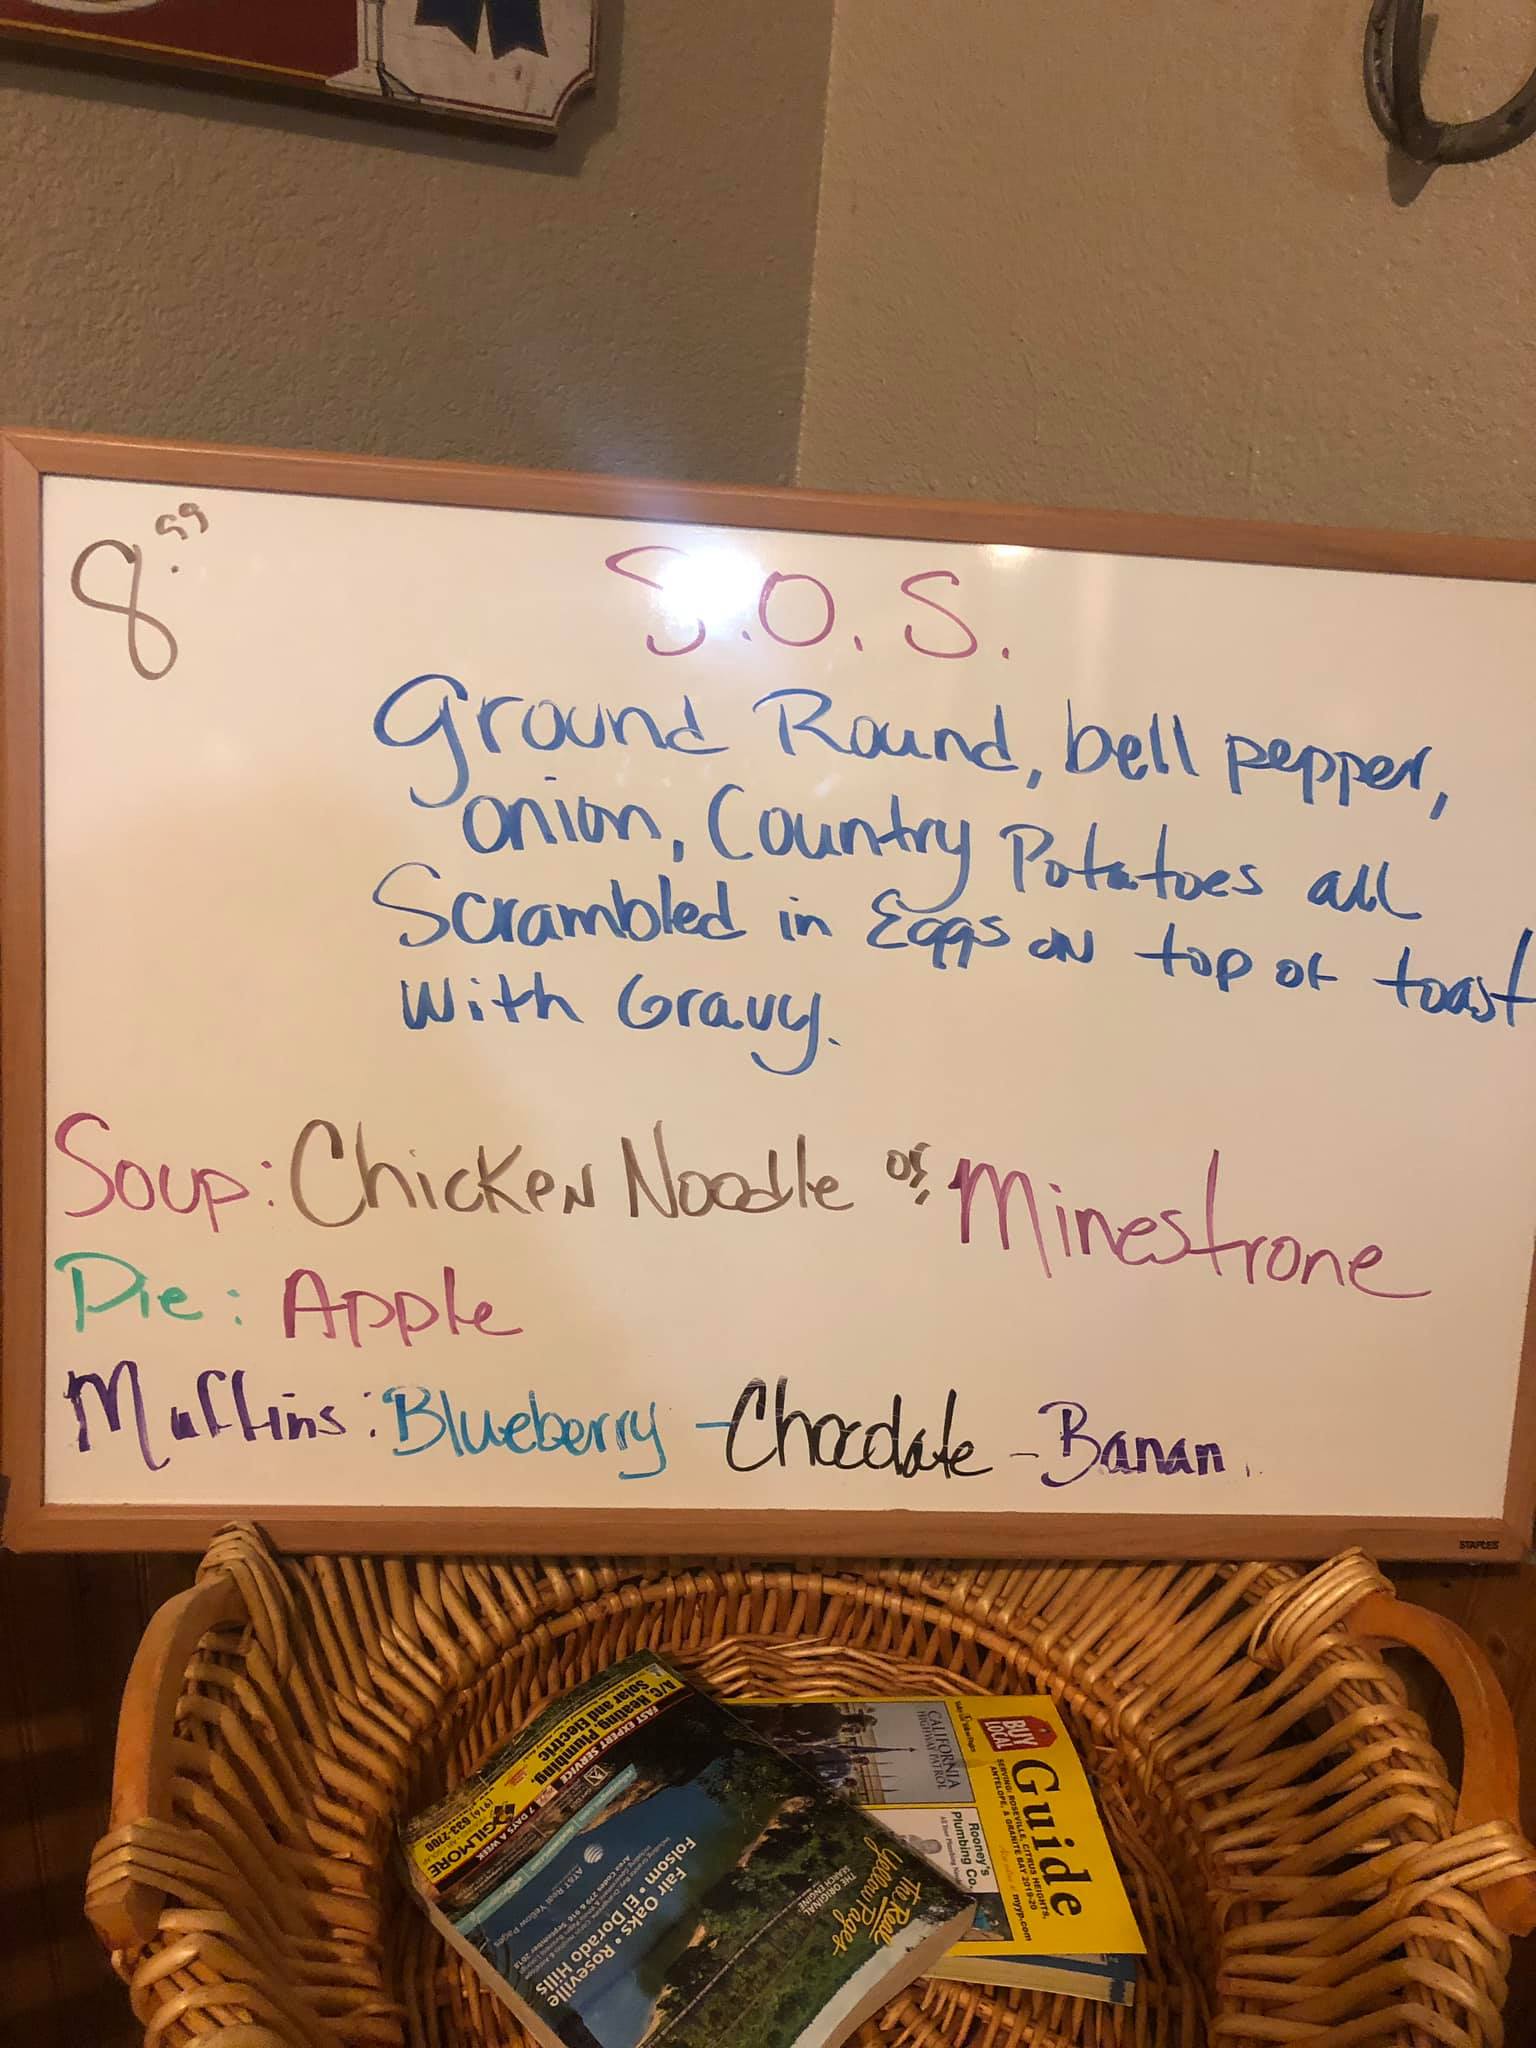 8.99
S.O.S.
Ground Round, bell pepper,
onion, Country Potatoes all
Scrambled in Eggs on top of toast
With Gravy.
Soup: Chicken Noodle or, Minestrone
Pie: Apple
Muffins: Blueberry - Chocolate - Banan
STAPLES
A/C, Heating Plumbing,
Solar and Electric
FAST EXPERT SERVICE
7 DAYS A WEEK
GILMORE
(916) 633-7700
AT&T Real Yellow Pages
Fair Oaks • Roseville
Folsom • El Dorado Hills
September 2018
The Real
Yellow Pages
THE ORIGINAL
SEARCH ENGINE
BUY
LOCAL
Guide
SERVING: ROSEVILLE, CITRUS HEIGHTS,
ANTELOPE, & GRANITE BAY 2019-20
myyp.com
CALIFORNIA
HIGHWAY PATROL
Rooney's
Plumbing Co.